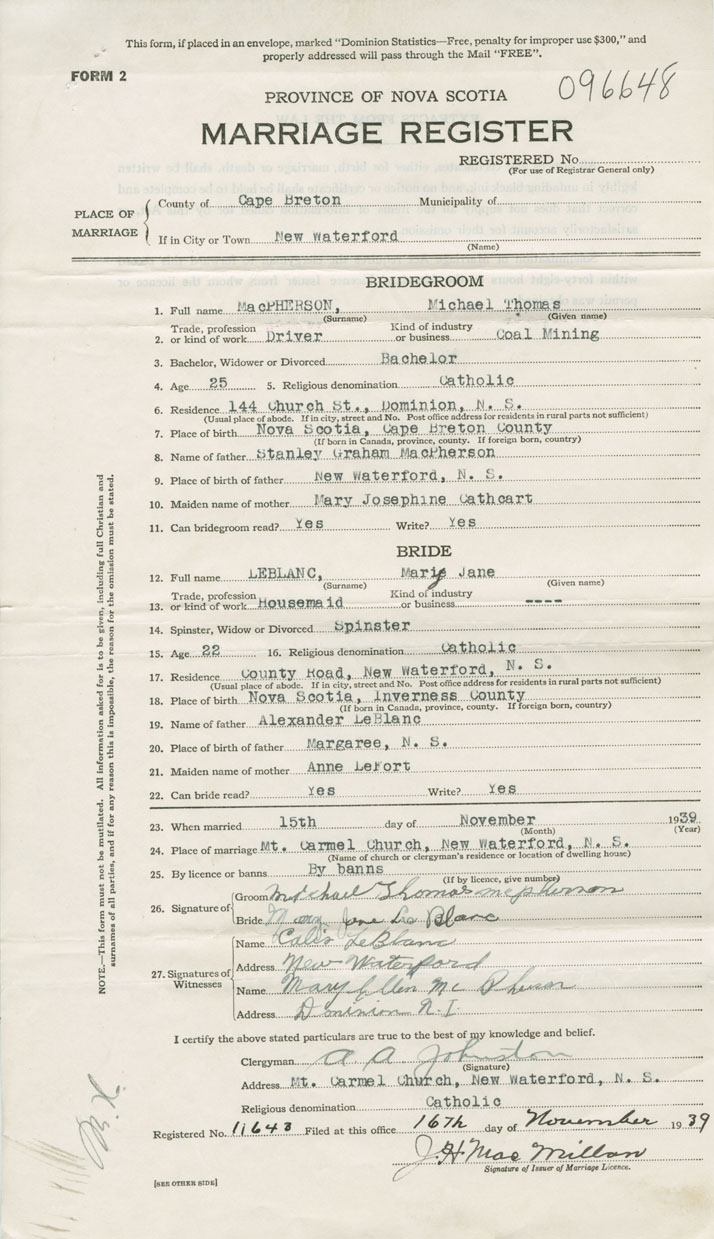 This form, if placed in an envelope, marked "Dominion Statistics—Free, penalty for improper use $300," and
properly addressed will pass through the Mail "FREE".
FORM 2
096648
PROVINCE OF NOVA SCOTIA
MARRIAGE REGISTER
REGISTERED No.
(For use of Registrar General only)
PLACE OF MARRIAGE
County of Cape Breton Municipality of
If in City or Town New Waterford
(Name)
BRIDEGROOM
1. Full name MacPHERSON, Michael Thomas
(Surname) (Given name)
2. Trade, profession or kind of work Driver Kind of industry or business Coal Mining
3. Bachelor, Widower or Divorced Bachelor
4. Age 25 5. Religious denomination Catholic
6. Residence 144 Church St., Dominion, N. S.
(Usual place of abode. If in city, street and No. Post office address for residents in rural parts not sufficient)
7. Place of birth Nova Scotia, Cape Breton County
(If born in Canada, province, county. If foreign born, country)
8. Name of father Stanley Graham MacPherson
9. Place of birth of father New Waterford, N. S.
10. Maiden name of mother Mary Josephine Cathcart
11. Can bridegroom read? Yes Write? Yes
BRIDE
12. Full name LEBLANC, Mary Jane
(Surname) (Given name)
13. Trade, profession or kind of work Housemaid Kind of industry or business ----
14. Spinster, Widow or Divorced Spinster
15. Age 22 16. Religious denomination Catholic
17. Residence County Road, New Waterford, N. S.
(Usual place of abode. If in city, street and No. Post office address for residents in rural parts not sufficient)
18. Place of birth Nova Scotia, Inverness County
(If born in Canada, province, county. If foreign born, country)
19. Name of father Alexander LeBlanc
20. Place of birth of father Margaree, N. S.
21. Maiden name of mother Anne LeFort
22. Can bride read? Yes Write? Yes
23. When married 15th day of November 1939
(Month) (Year)
24. Place of marriage Mt. Carmel Church, New Waterford, N. S.
(Name of church or clergyman's residence or location of dwelling house)
25. By licence or banns By banns
(If by licence, give number)
26. Signature of
Groom Michael Thomas mcpherson
Bride Mary Jane Le Blanc
27. Signatures of Witnesses
Name LeBlanc
Address New Waterford
Name Mary Ellen Mc Pherson
Address Dominion
I certify the above stated particulars are true to the best of my knowledge and belief.
Clergyman A A Johnston
(Signature)
Address Mt. Carmel Church, New Waterford, N. S.
Religious denomination Catholic
Registered No. 11643 Filed at this office 16th day of November 1939
J.H. Mac Millan
Signature of Issuer of Marriage Licence.
[SEE OTHER SIDE]
NOTE.—This form must not be mutilated. All information asked for is to be given, including full Christian and
surnames of all parties, and if for any reason this is impossible, the reason for the omission must be stated.